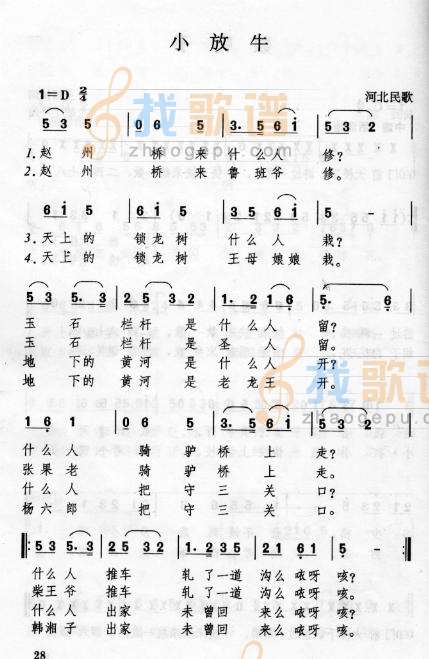 小放牛
1=D 2/4
河北民歌
5 3 5 0 6 5 3. 5 6 i 5 3 2
1.赵州桥来什么人修？
2.赵州桥来鲁班爷修。
6 i 5 6 i 5 6 i 6 i 5 -
3.天上的锁龙树什么人栽？
4.天上的锁龙树王母娘娘栽。
5 3 5. 3 2 5 3 2 1. 2 1 6 5. 6
玉石栏杆是什么人留？
玉石栏杆是圣人留。
地下的黄河是什么人开？
地下的黄河是老龙王开。
1 6 1 0 6
什么人骑驴桥上走？
张果老骑驴桥上走。
什么人把守三关口？
杨六郎把守三关口？
5 3 5. 3 2 5 3 2 1. 2 5 3 2 2 1 6 1 5 -
什么人推车轧了一道沟么咴呀咳？
柴王爷推车轧了一道沟么咴呀咳。
什么人出家未曾回来么咴呀咳？
韩湘子出家未曾回来么咴呀咳。
28
找歌谱
zhaogepu.com
找歌谱
zhaogepu.com